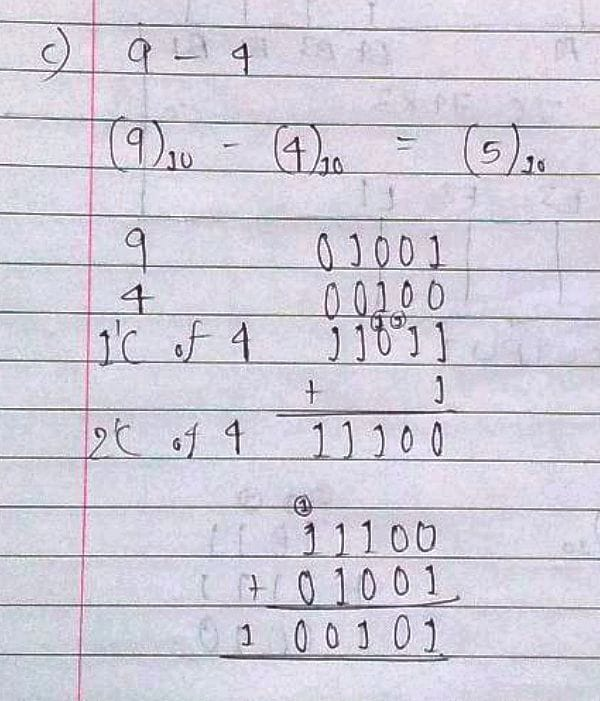 c) 9 - 4
(9)10 - (4)10 = (5)10
9 01001
4 00100
1'C of 4 11011
+ 1
2'C of 4 11100
1
11100
+ 01001
1 00101